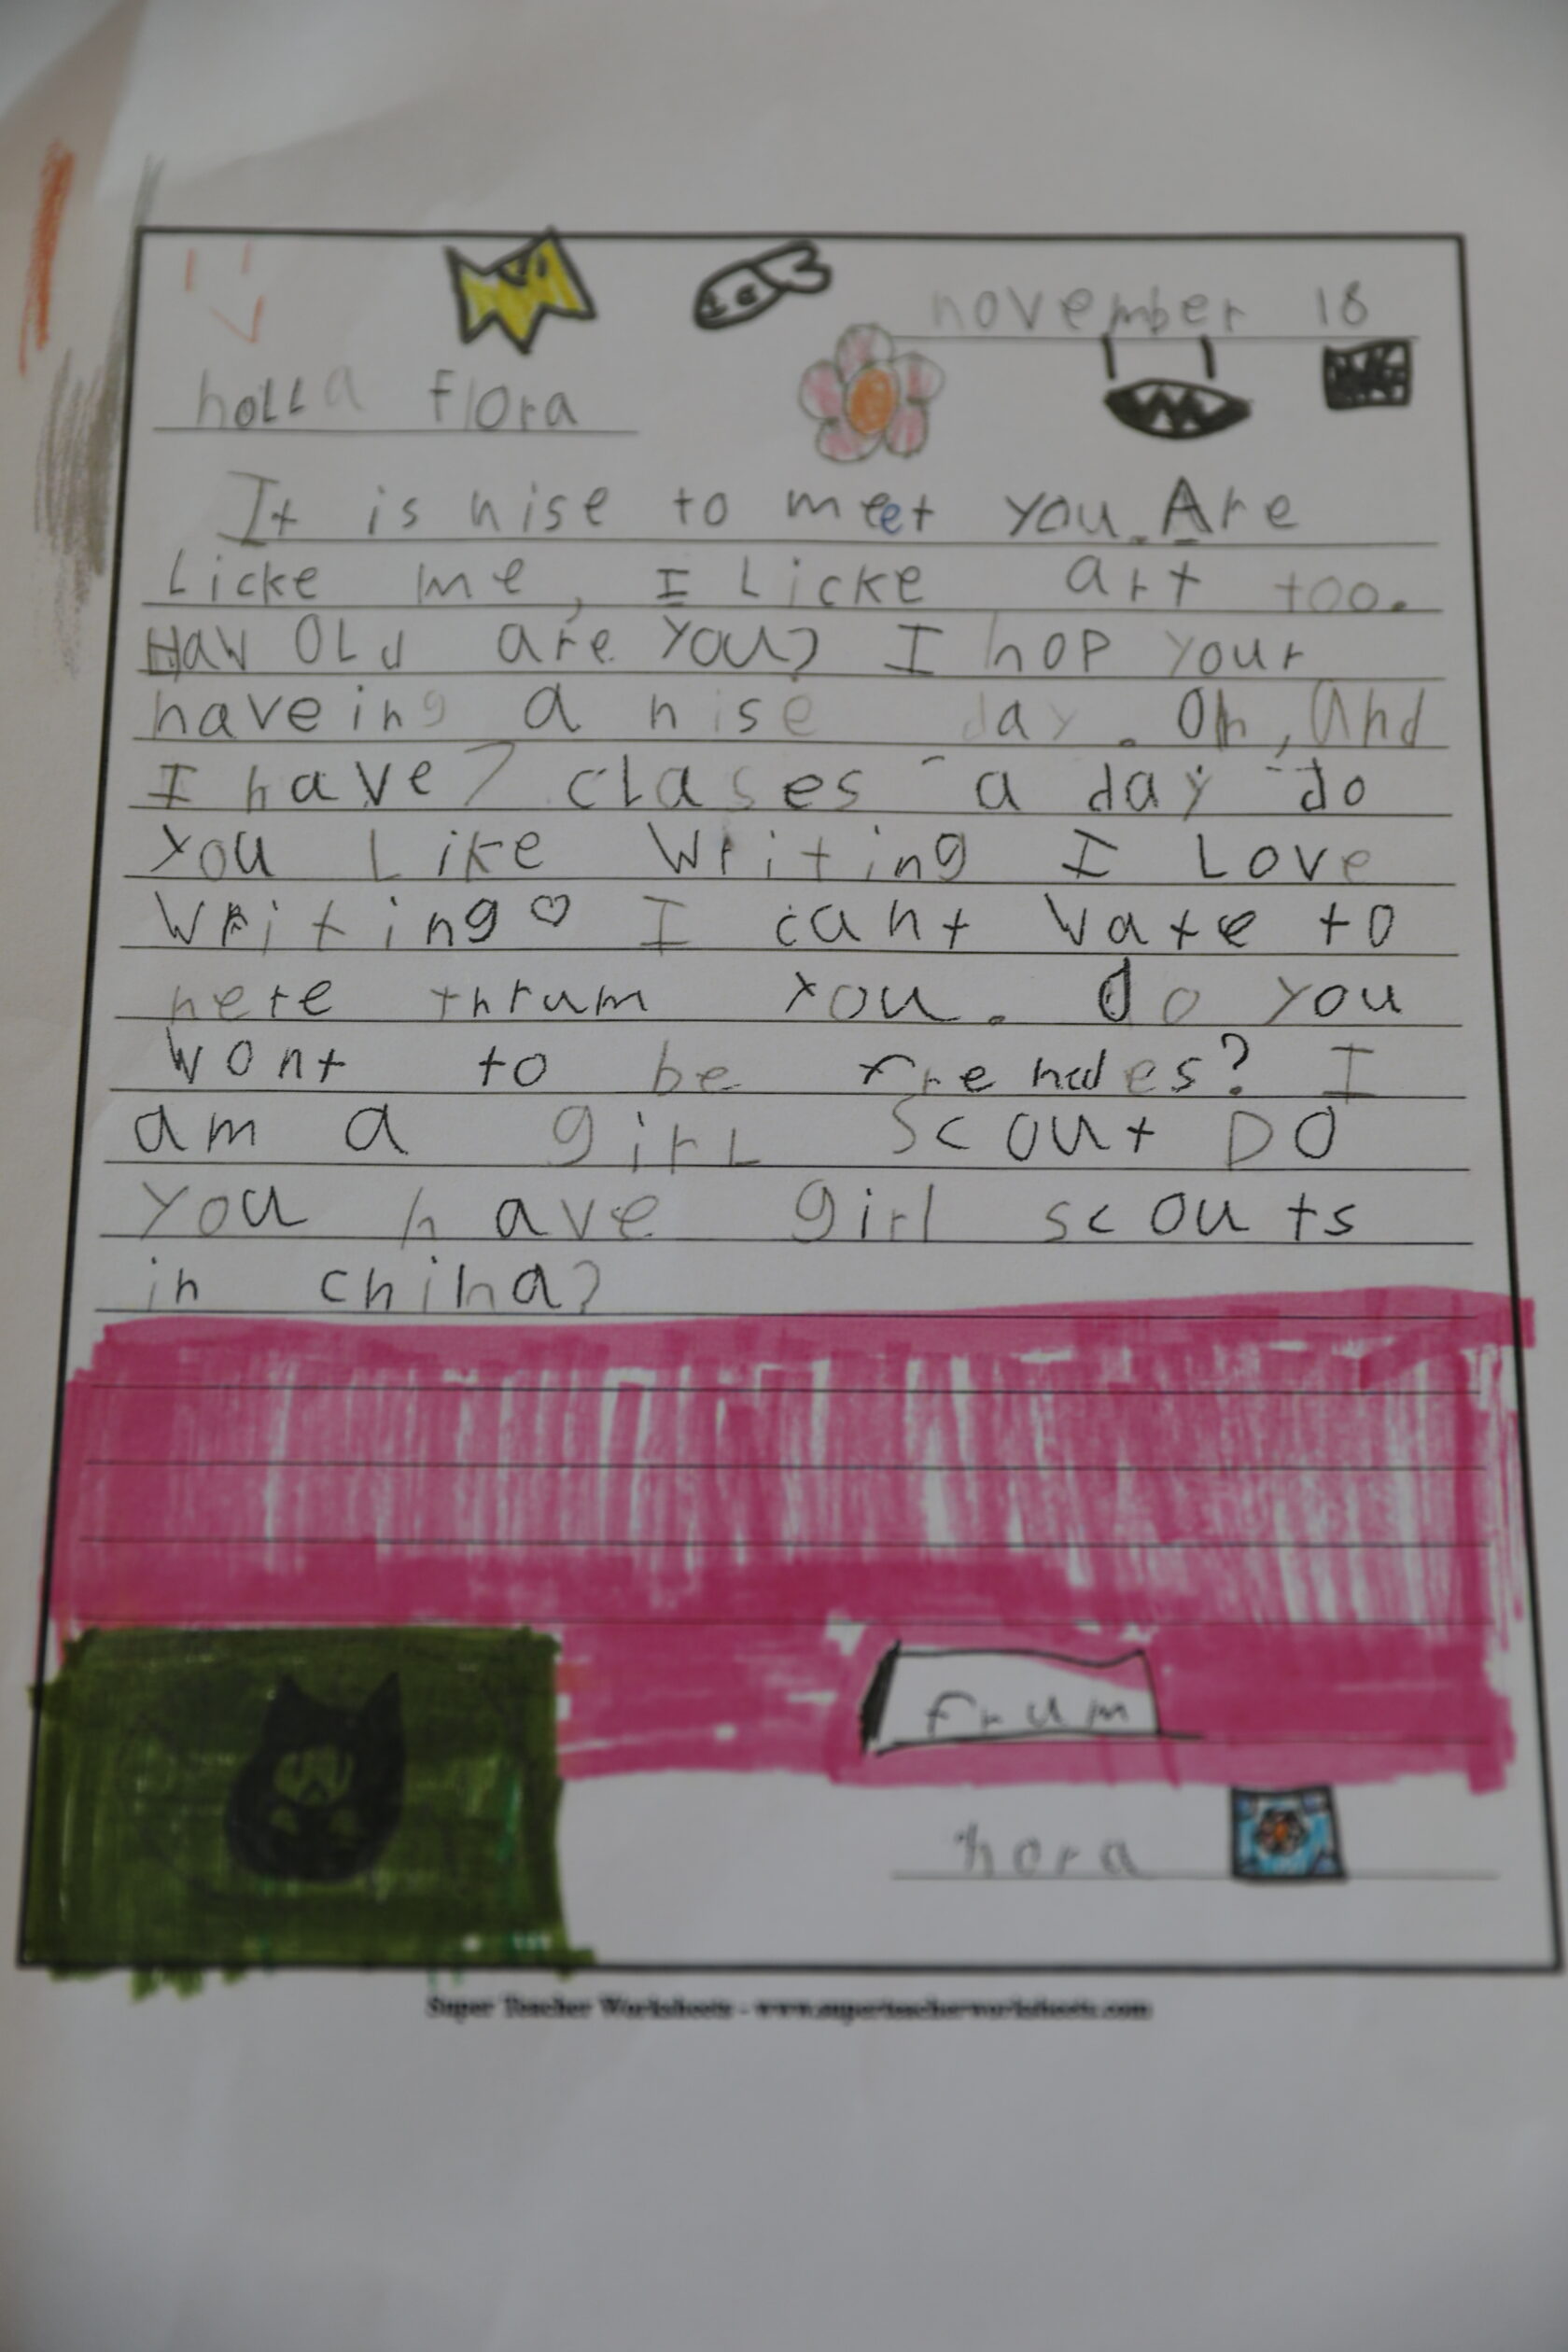 november 18
holla flora
It is nise to meet you. Are
Licke me, I Licke art too.
Haw OLd are you? I hop your
haveing a nise day. Oh, and
I have 7 clases a day do
you Like Writing I Love
Writing♡ I cant Wate to
here thrum you. do you
Wont to be frendes? I
am a girL Scout DO
you have girl scouts
in china?
frum
nora
Super Teacher Worksheets - www.superteacherworksheets.com